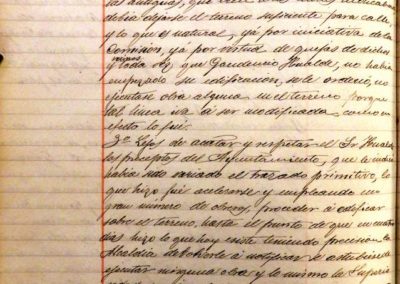 debia dejarse el terreno suficiente para calle,
y lo que es natural, ya por iniciativa de la
Comision, ya por virtud de quejas de dichos
y toda vez que Gaudencio Hualde, no habia
empezado su edificacion, se le ordenó, no
ejecutase obra alguna en el terreno porque
la linea iva á ser modificada, como en
efecto lo fué.
3º Lejos de acatar y respetar el Sr Hualde
los preceptos del Ayuntamiento, que le indicó
habia sido variado el trazado primitivo, lo
que hizo fué acelerarse y empleando un
gran número de obreros, proceder á edificar
sobre el terreno, hasta el punto de que en cuatro
dias hizo lo que hoy existe teniendo precision la
Alcaldía de notificar se abstubiese de
ejecutar ninguna obra y lo mismo la